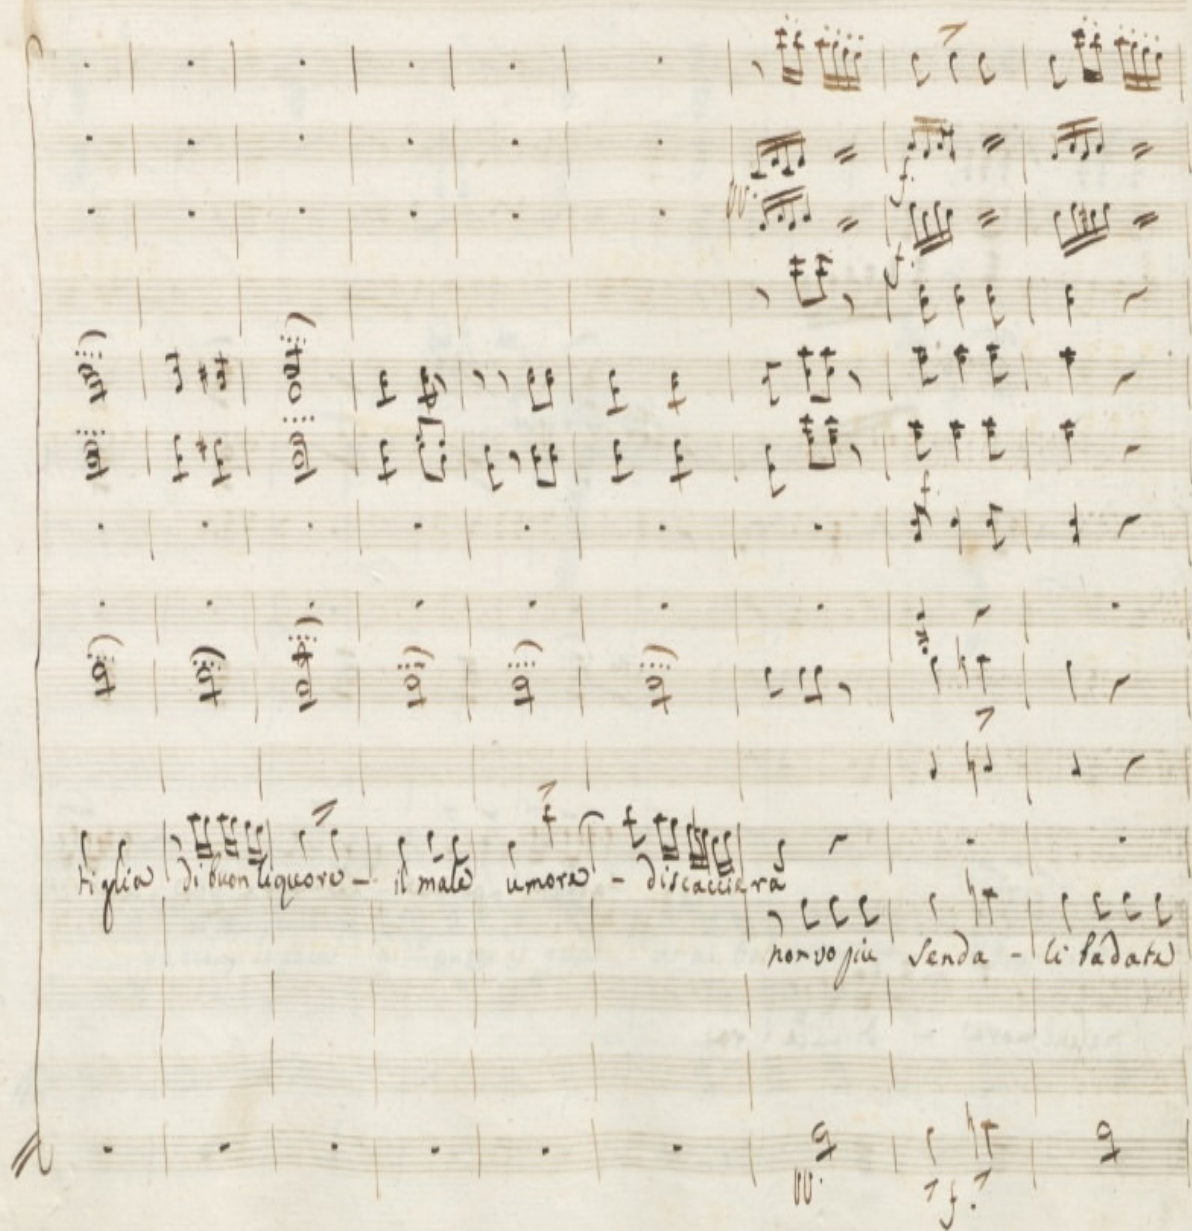 tiglia di buon liquore - il male umore - discaccierà
non vo piu senda - li badate